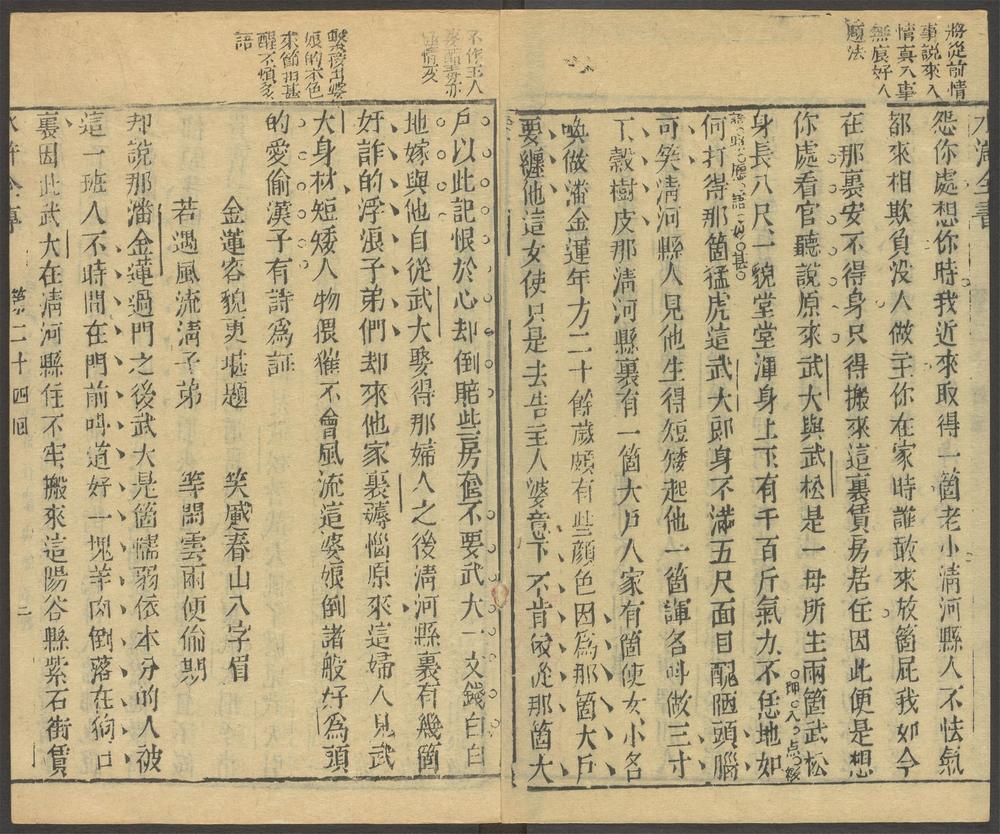 將從前情
事說來入
情真入事
無痕好入
題法
怨你處想你時我近來取得一箇老小清河縣人不怯氣
都來相欺負没人做主你在家時誰敢來放箇屁我如今
在那裏安不得身只得搬來這裏賃房居住因此便是想
你處看官聽說原來武大與武松是一母所生兩箇武松
身長八尺一貌堂堂渾身上下有千百斤氣力不恁地如
何打得那箇猛虎這武大郎身不滿五尺面目醜陋頭腦
可笑清河縣人見他生得短矮起他一箇諢名呌做三寸
丁穀樹皮那清河縣裏有一箇大戶人家有箇使女小名
喚做潘金蓮年方二十餘歲頗有些顔色因爲那箇大戶
要纏他這女使只是去告主人婆意下不肯依從那箇大
不作主人
戶以此記恨於心却倒賠些房奩不要武大一文錢白白
地嫁與他自從武大娶得那婦人之後清河縣裏有幾箇
奸詐的浮浪子弟們却來他家裏薅惱原來這婦人見武
大身材短矮人物猥㺁不會風流這婆娘倒諸般好爲頭
的愛偷漢子有詩爲証
金蓮容貌更堪題　笑蹙春山八字眉
若遇風流清子弟　等閑雲雨便偷期
却說那潘金蓮過門之後武大是箇懦弱依本分的人被
這一班人不時間在門前呌道好一塊羊肉倒落在狗口
裏因此武大在清河縣住不牢搬來這陽谷縣紫石街賃
第二十四回
二